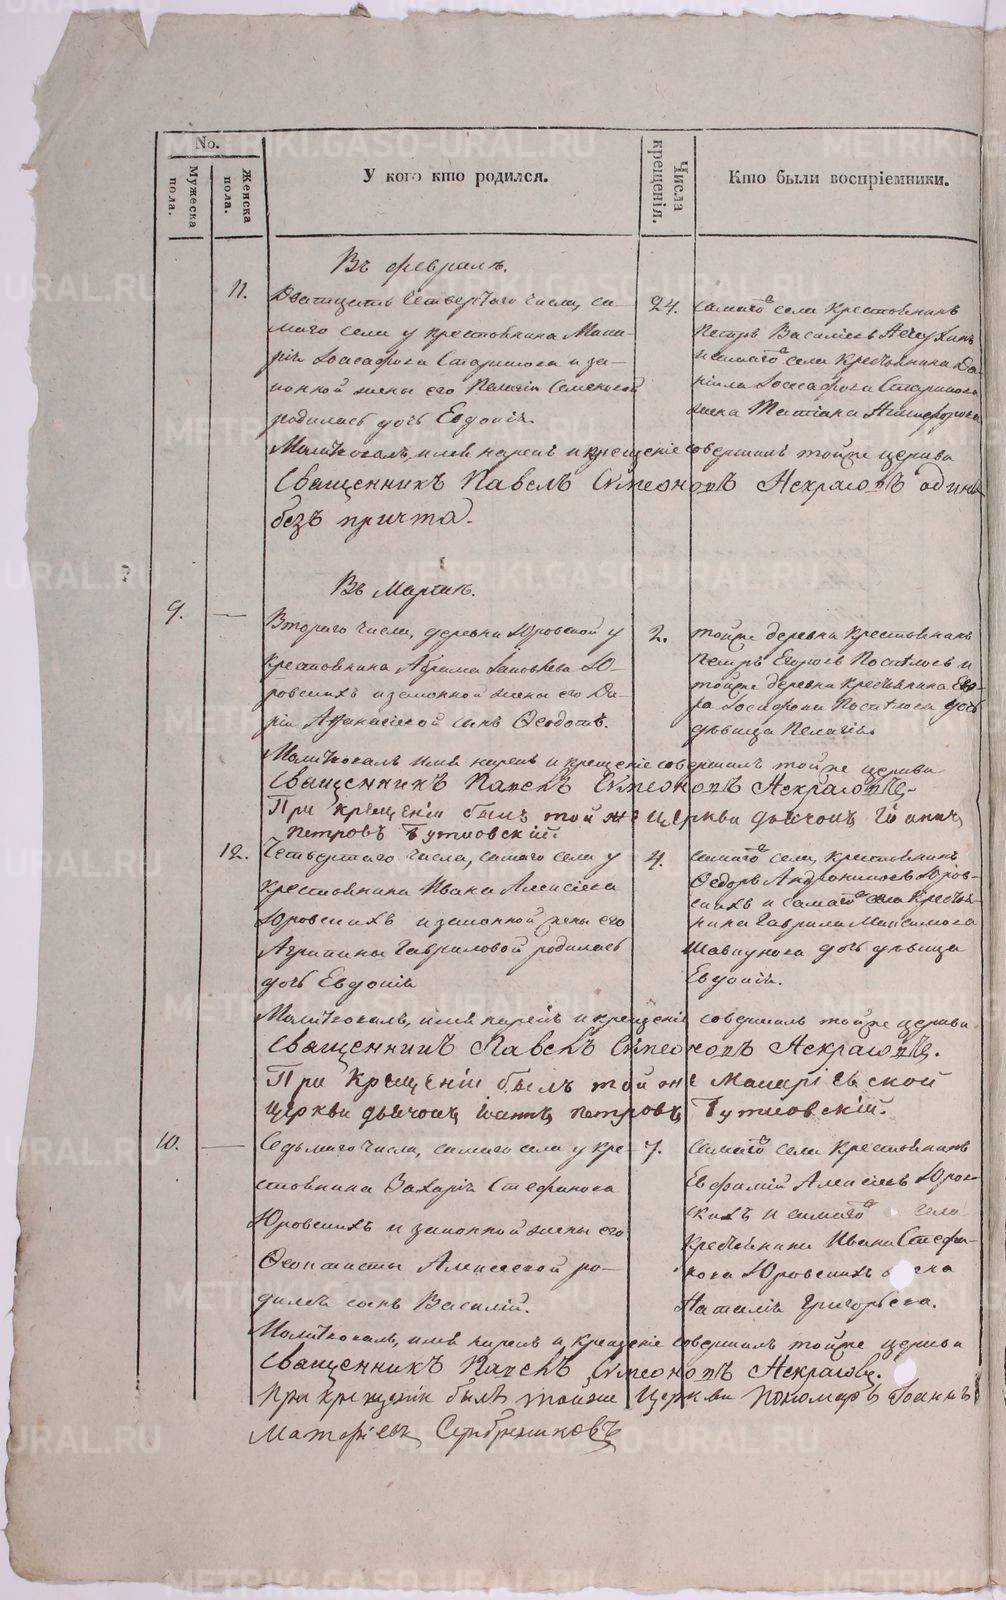 No.
Мужеска пола.
Женска пола.
У кого кто родился.
Числа крещенія.
Кто были воспріемники.
Въ февралѣ.
11.
Дватцать четвертаго числа, са-
маго села у крестьянина Мака-
рія Іоасафова Старикова и за-
конной жены его Пелагіи Семеновой
родилась дочь Евдокія.
24.
самаго села крестьянинъ
Петръ Василіевъ
и самаго села крестьянина Да-
ніила Іоасафова Старикова
жена Татіана Никифорова
Молитвовалъ, имя нарекъ и крещеніе совершилъ тойже церкви
Священникъ Павелъ Сѵмеоновъ Некрасовъ одинъ
безъ причта.
Въ Мартѣ.
9.
Втораго числа, деревни Юровской у
крестьянина Абрама Іаковлева Ю-
ровскихъ и законной жены его Да-
ріи Афанасіевой сынъ Ѳеодотъ.
2.
тойже деревни крестьянинъ
Петръ Егоровъ Поспѣловъ и
тойже деревни крестьянина
Іоасафова Поспѣлова дочь
дѣвица Пелагія.
Молитвовалъ имя нарекъ и крещеніе совершилъ тойже церкви
Священникъ Павелъ Сѵмеоновъ Некрасовъ.
При крещеніи былъ той же церкви дьячокъ Іоаннъ
Петровъ Бутковскій.
12.
Четвертаго числа, самаго села у
крестьянина Ивана Алексіева
Юровскихъ и законной жены его
Агрипины Гавриловой родилась
дочь Евдокія
4.
самаго села, крестьянинъ
Ѳедоръ Андрониковъ Юров-
скихъ и самаго села крестья-
нина Гаврила Максимова
дочь дѣвица
Евдокія.
Молитвовалъ, имя нарекъ и крещеніе совершилъ тойже церкви
Священникъ Павелъ Сѵмеоновъ Некрасовъ.
При крещеніи былъ той же Макаріевской
церкви дьячокъ Іоаннъ Петровъ Бутковскій.
10.
Седьмаго числа, самаго села у кре-
стьянина Захарія Стефанова
Юровскихъ и законной жены его
Ѳеоктисты Алексеевой ро-
дился сынъ Василій.
7.
самаго села крестьянинъ
Евфимій Алексіевъ Юров-
скихъ и самаго села
крестьянина Ивана Стефа-
нова Юровскихъ жена
Наталія Григорьева.
Молитвовалъ, имя нарекъ и крещеніе совершилъ тойже церкви
Священникъ Павелъ Сѵмеоновъ Некрасовъ.
При крещеніи былъ тойже Церкви Пономарь Іоаннъ
Матфіевъ Серебрениковъ
METRIKI.GASO-URAL.RU